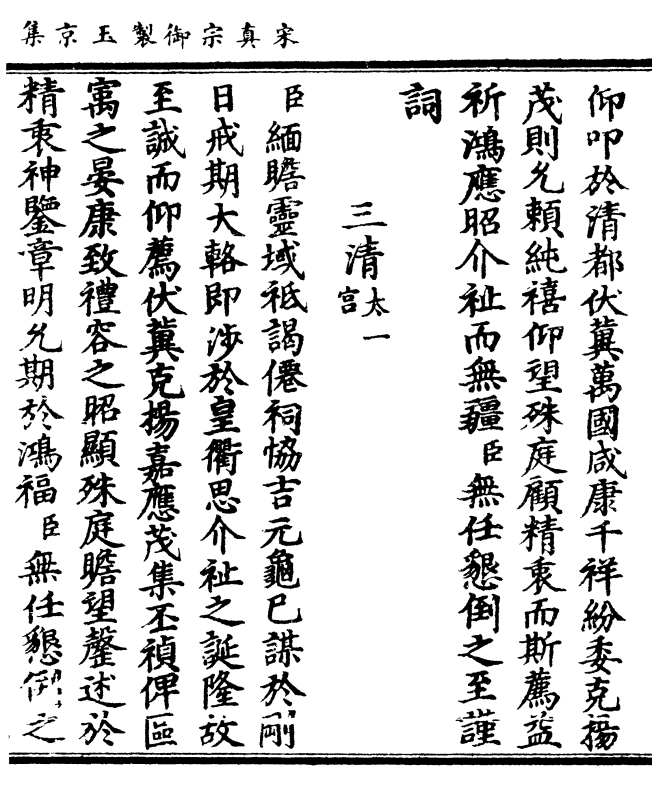 宋真宗御製玉京集
仰叩於清都伏冀萬國咸康千祥紛委克揚
茂則允賴純禧仰望殊庭顧精衷而斯薦益
祈鴻應昭介祉而無疆臣無任懇倒之至謹
詞
三清太一宮
臣緬瞻靈域祇謁僊祠協吉元龜已謀於剛
日戒期大輅即涉於皇衢思介祉之誕隆故
至誠而仰薦伏冀克揚嘉應茂集丕禎俾區
寓之晏康致禮容之昭顯殊庭瞻望罄述於
精衷神鑒章明允期於鴻福臣無任懇倒之